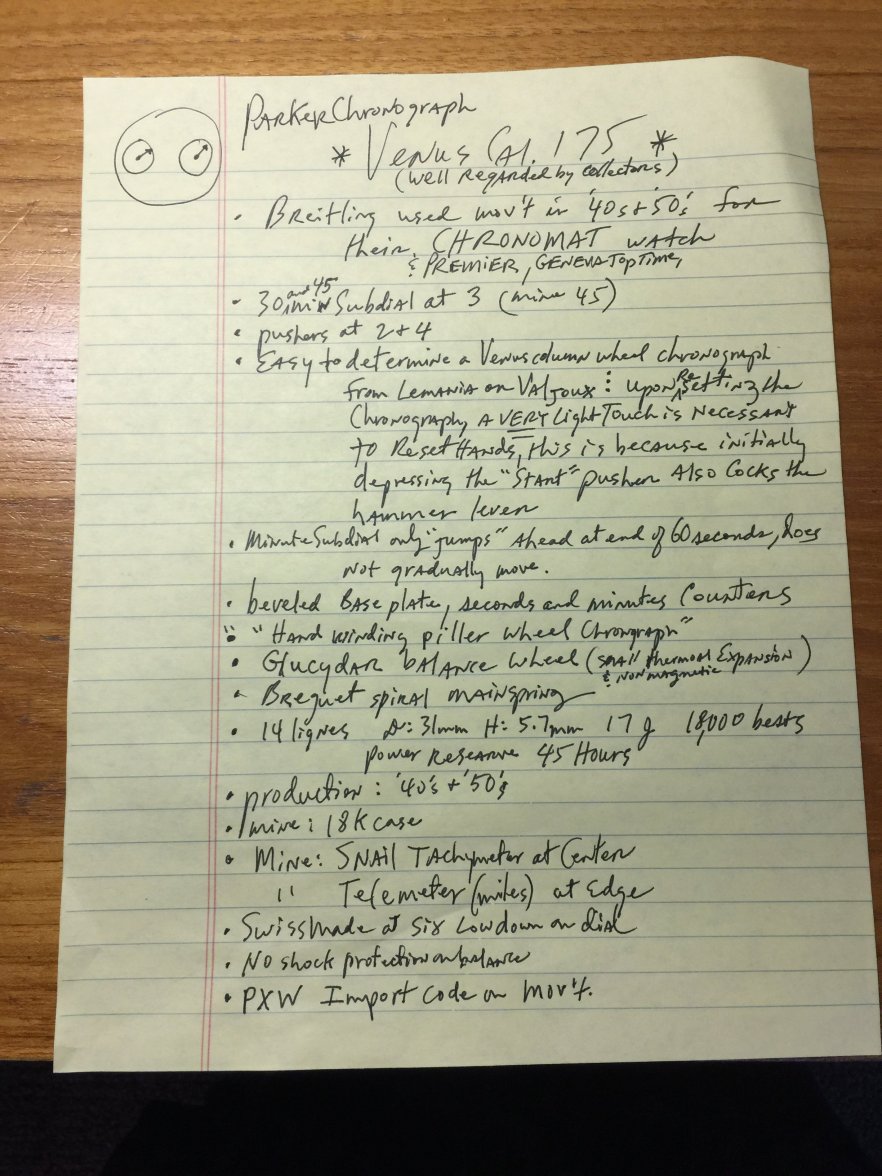 Parker Chronograph
* Venus Cal. 175 *
(well regarded by collectors)
• Breitling used mov't in '40s + '50's for
their CHRONOMAT watch
& PREMIER, GENEVA TopTime,
• 30 and 45 min Subdial at 3 (mine 45)
• pushers at 2+4
• Easy to determine a Venus column wheel chronograph
from Lemania or Valjoux : upon Resetting the
Chronograph, A VERY Light Touch is Necessary
to Reset Hands, this is because initially
depressing the "Start" pusher Also Cocks the
hammer lever
• Minute Subdial only "jumps" Ahead at end of 60 seconds, does
not gradually move.
• beveled Base plate, seconds and minutes Counters
• "Hand winding piller wheel Chrongraph"
• Glucydar balance wheel (small thermal Expansion)
& Non magnetic
• Breguet spiral mainspring
• 14 lignes D: 31mm H: 5.7mm 17 j 18,000 beats
power Reserve 45 Hours
• production : '40's + '50's
• mine : 18K case
• Mine: SNAil TAchymeter at Center
" Telemeter (miles) at Edge
• Swiss Made at Six Low down on dial
• No shock protection on balance
• PXW Import Code on Mov't.